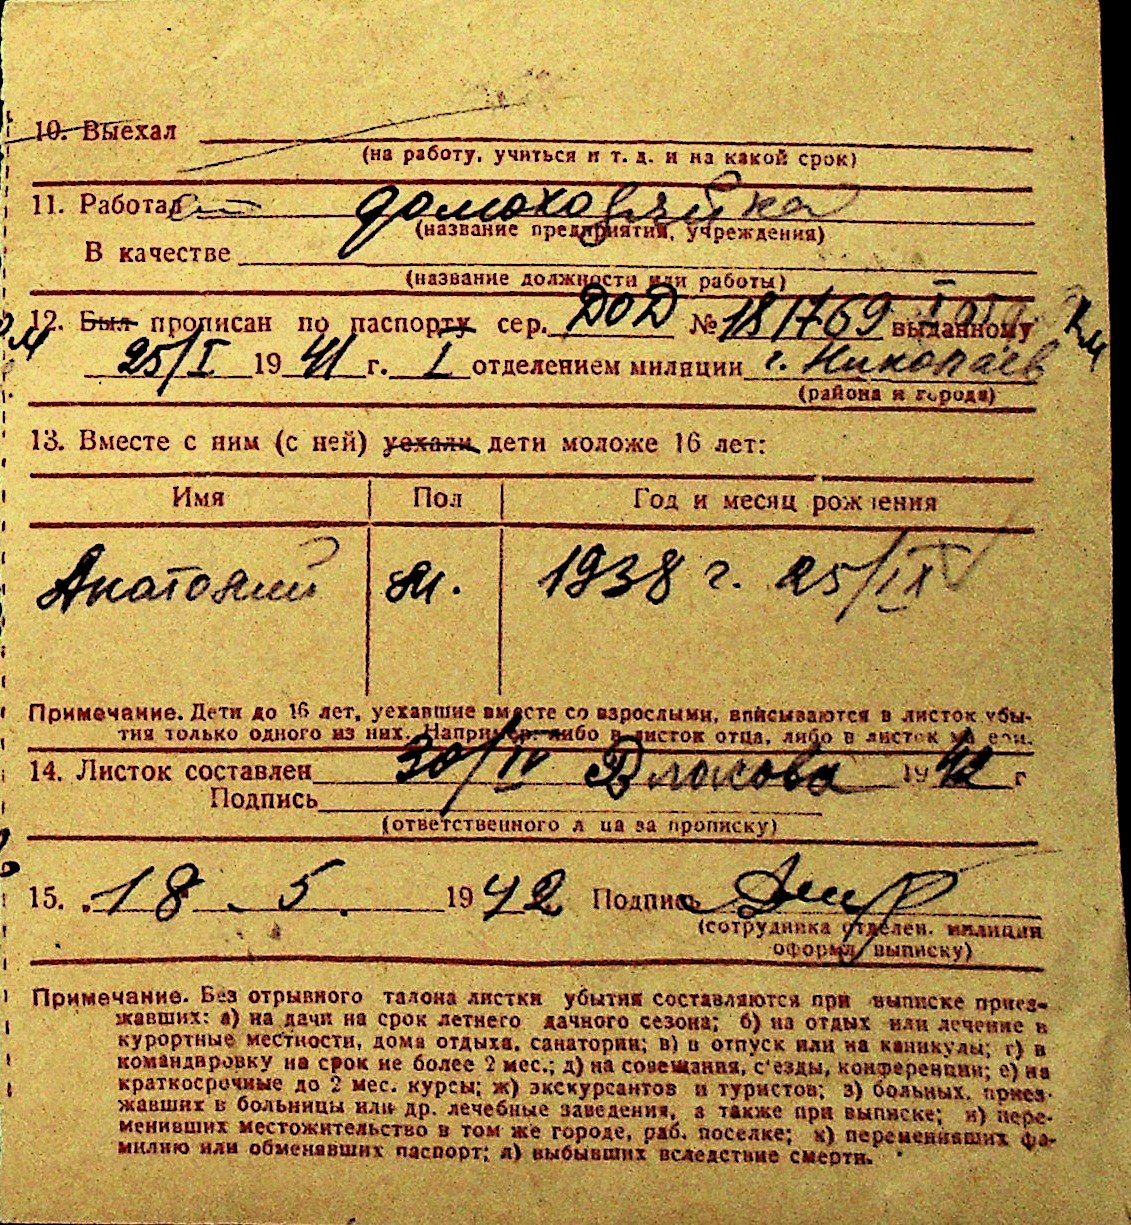 10. Выехал
(на работу, учиться и т. д. и на какой срок)
11. Работал домохозяйка
(название предприятия, учреждения)
В качестве
(название должности или работы)
12. Был прописан по паспорту сер. ДОД № 181769 выданному
25/I 1941 г. I отделением милиции г. Николаев
(района и города)
13. Вместе с ним (с ней) уехали дети моложе 16 лет:
Имя Пол Год и месяц рождения
Анатолий м. 1938 г. 25/IX
Примечание. Дети до 16 лет, уехавшие вместе со взрослыми, вписываются в листок убы-
тия только одного из них. Например: либо в листок отца, либо в листок матери.
14. Листок составлен 30/IV Власова 1942 г
Подпись
(ответственного лица за прописку)
15. 18. 5. 1942 Подпись
(сотрудника отделен. милиции
оформл. выписку)
Примечание. Без отрывного талона листки убытия составляются при выписке приез-
жавших: а) на дачи на срок летнего дачного сезона; б) на отдых или лечение в
курортные местности, дома отдыха, санатории; в) в отпуск или на каникулы; г) в
командировку на срок не более 2 мес.; д) на совещания, съезды, конференции; е) на
краткосрочные до 2 мес. курсы; ж) экскурсантов и туристов; з) больных, приез-
жавших в больницы или др. лечебные заведения, а также при выписке; и) пере-
менивших местожительство в том же городе, раб. поселке; к) переменивших фа-
милию или обменявших паспорт; л) выбывших вследствие смерти.